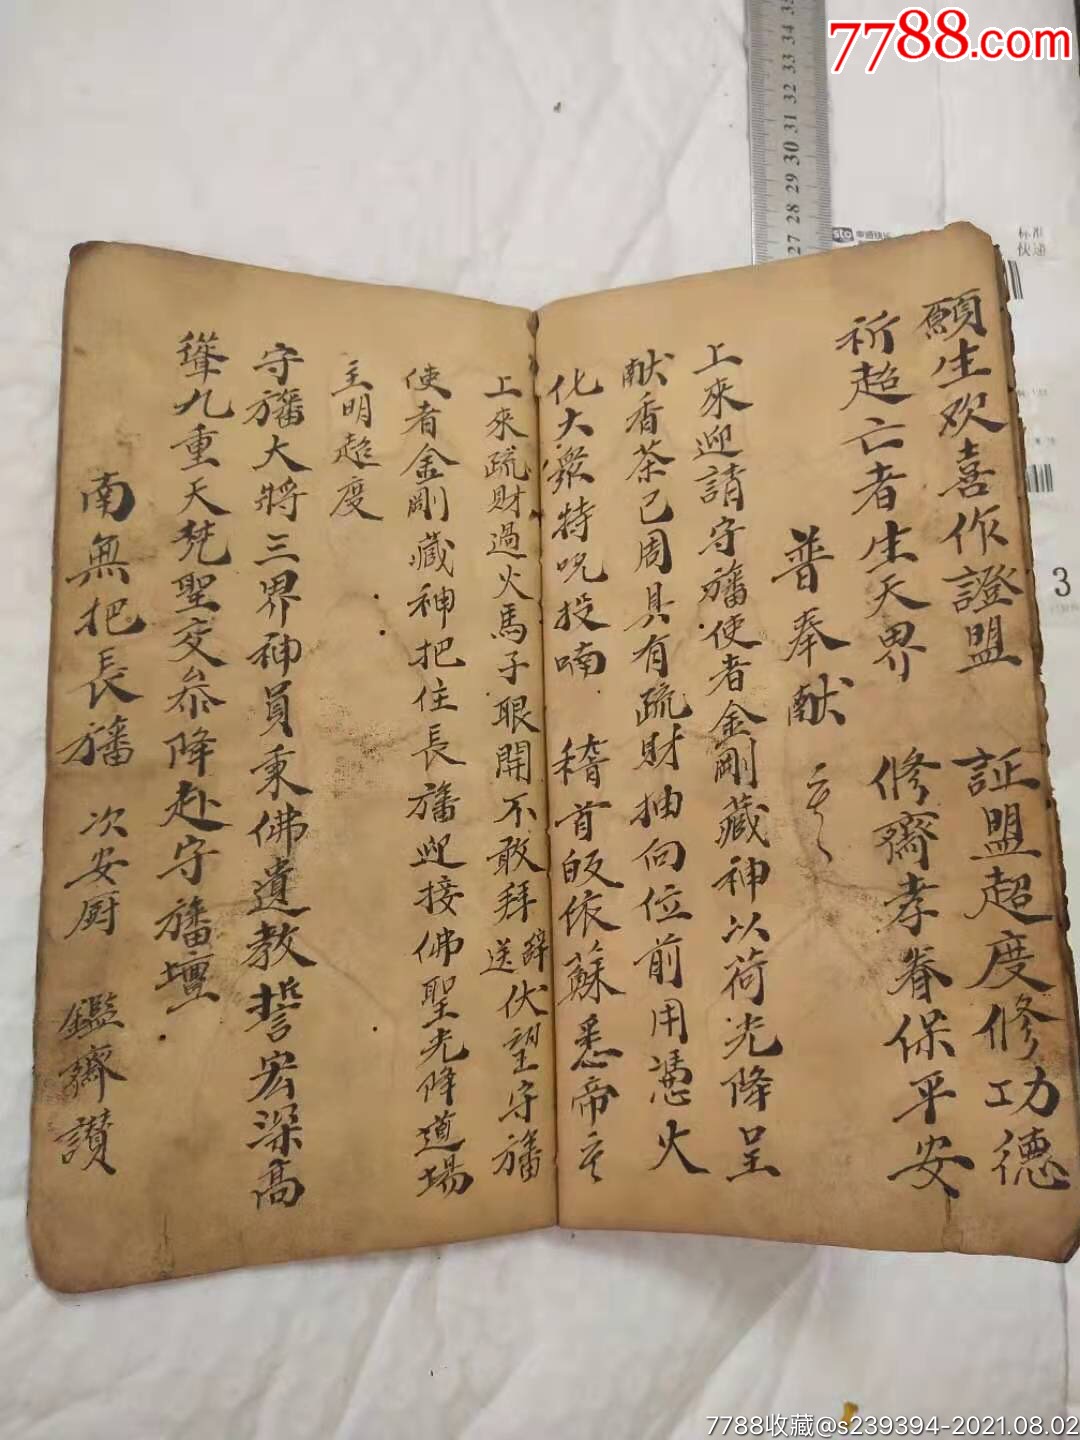 7788.com
願生欢喜作證盟　証盟超度修功德
祈超亡者生天界　修齋孝眷保平安
普奉献
上來迎請守旛使者金剛藏神以荷光降呈
献香茶已周具有疏財抽向位前用憑火
化大衆特呪投喃　稽首皈依蘇悉帝
上來疏財過火馬子眼開不敢拜辞送伏望守旛
使者金剛藏神把住長旛迎接佛聖光降道場
主明超度
守旛大將三界神員秉佛遺教誓宏深高
聳九重天梵聖交叅降赴守旛壇
南無把長旛　次安厨　鑑齋讃
sto
标准
快递
3
27 28 29 30 31 32 33 34 35
7788收藏@s239394-2021.08.02